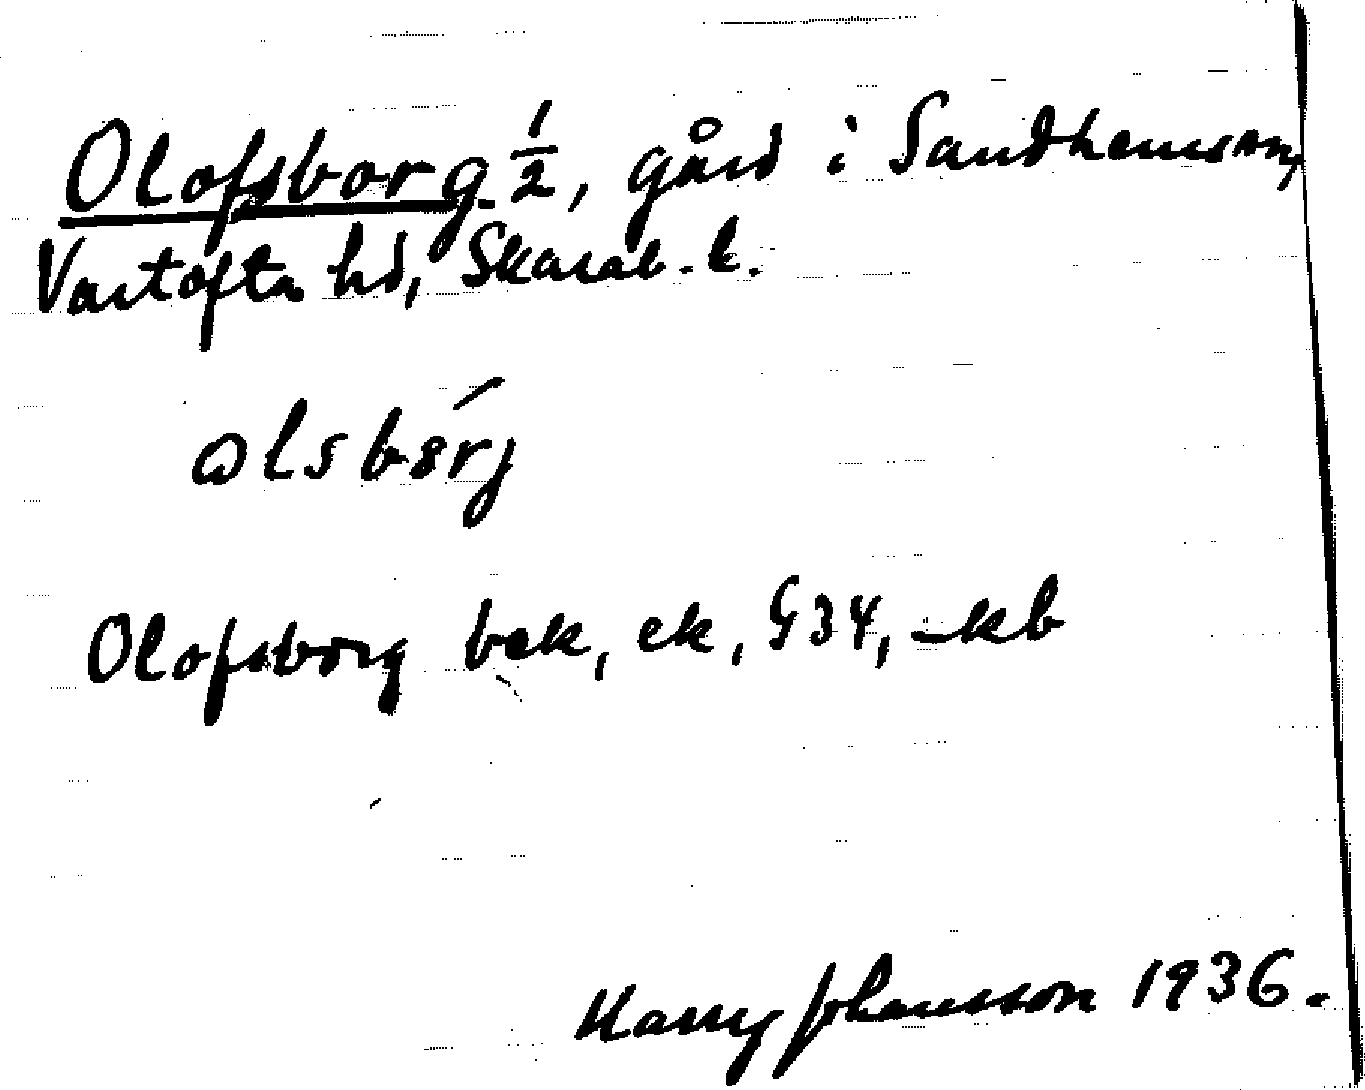 Olofsborg ½, gård i Sandhems sn,
Vartofta hd, Skarab. l.
olsbórj
Olofsborg bek, ek, G34, -kb
Harry Johansson 1936.